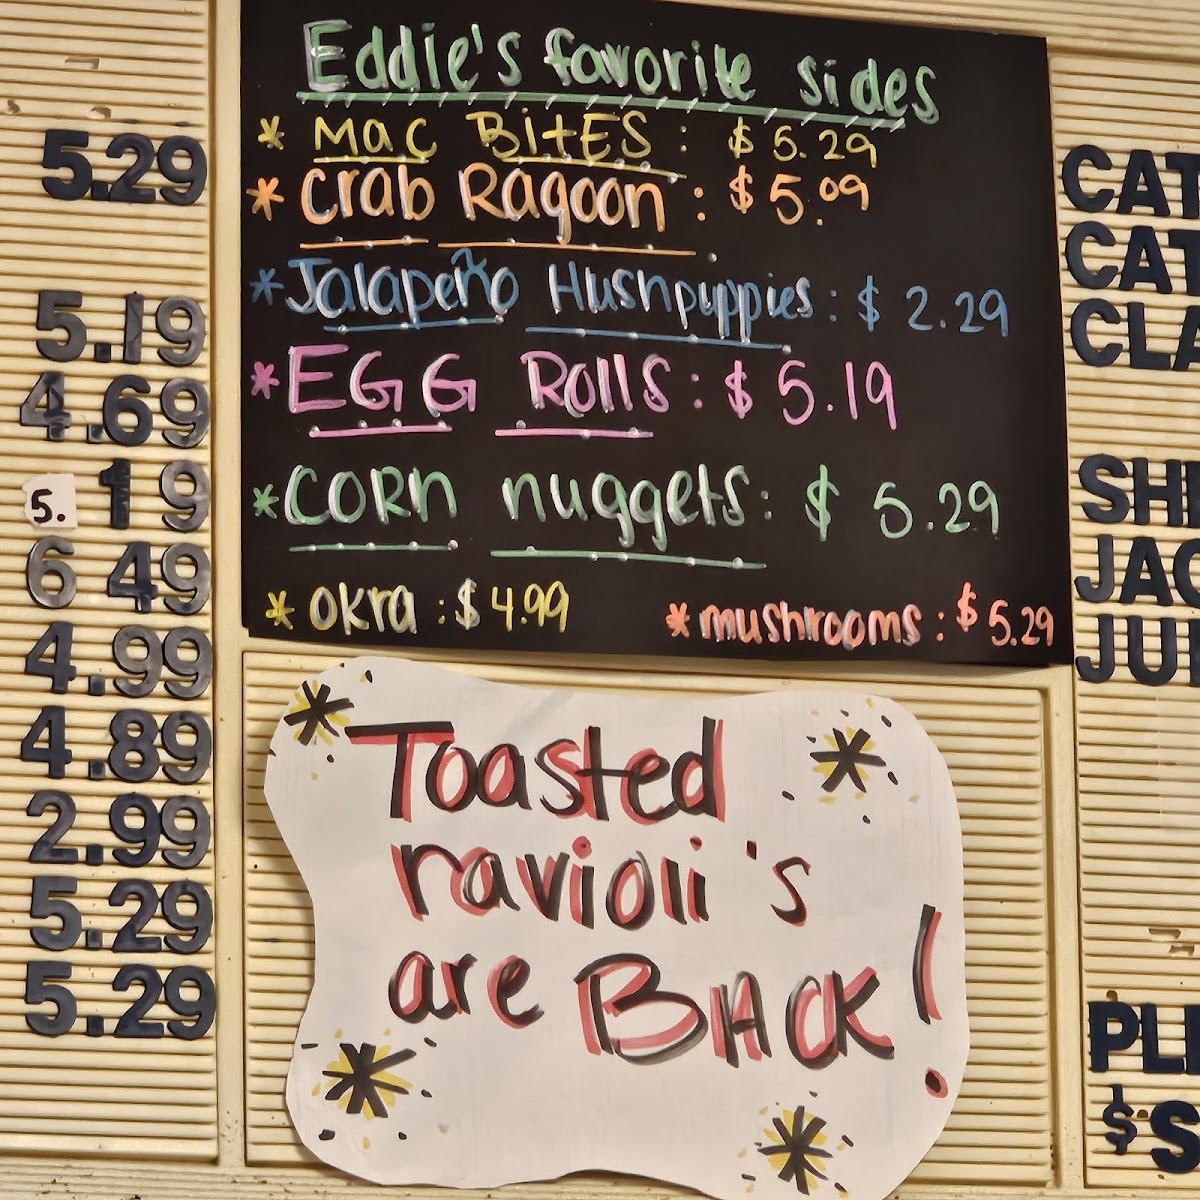 5.29
5.19
4.69
5.19
6 49
4.99
4.89
2.99
5.29
5.29
Eddie's favorite sides
* Mac BitES: $5.29
* Crab Ragoon: $5.09
* Jalapeño Hushpuppies: $2.29
* EGG Rolls: $5.19
* CORn nuggets: $5.29
* okra: $4.99 * mushrooms: $5.29
Toasted
ravioli's
are BAck!
CAT
CAT
CLA
SH
JAC
JU
PL
$S